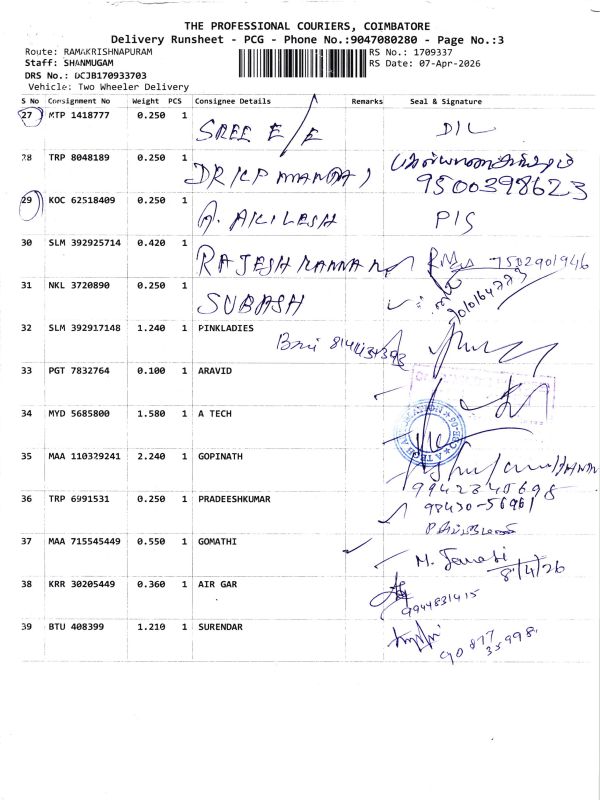 THE PROFESSIONAL COURIERS, COIMBATORE
Delivery Runsheet - PCG - Phone No.:9047080280 - Page No.:3
Route: RAMAKRISHNAPURAM RS No.: 1709337
Staff: SHANMUGAM RS Date: 07-Apr-2026
DRS No.: DCJB170933703
Vehicle: Two Wheeler Delivery
S No Consignment No Weight PCS Consignee Details Remarks Seal & Signature
27 MTP 1418777 0.250 1 SREE E/E D/L
28 TRP 8048189 0.250 1 DR 9500398623
29 KOC 62518409 0.250 1 A. AKILESH P/S
30 SLM 392925714 0.420 1 RAJESH KANNAN 7502901946
31 NKL 3720890 0.250 1 SUBASH
32 SLM 392917148 1.240 1 PINKLADIES
33 PGT 7832764 0.100 1 ARAVID
34 MYD 5685800 1.580 1 A TECH
35 MAA 110329241 2.240 1 GOPINATH
9942340698
36 TRP 6991531 0.250 1 PRADEESHKUMAR 98430-56961
37 MAA 715545449 0.550 1 GOMATHI M.
8/4/26
38 KRR 30205449 0.360 1 AIR GAR
9944831415
39 BTU 408399 1.210 1 SURENDAR